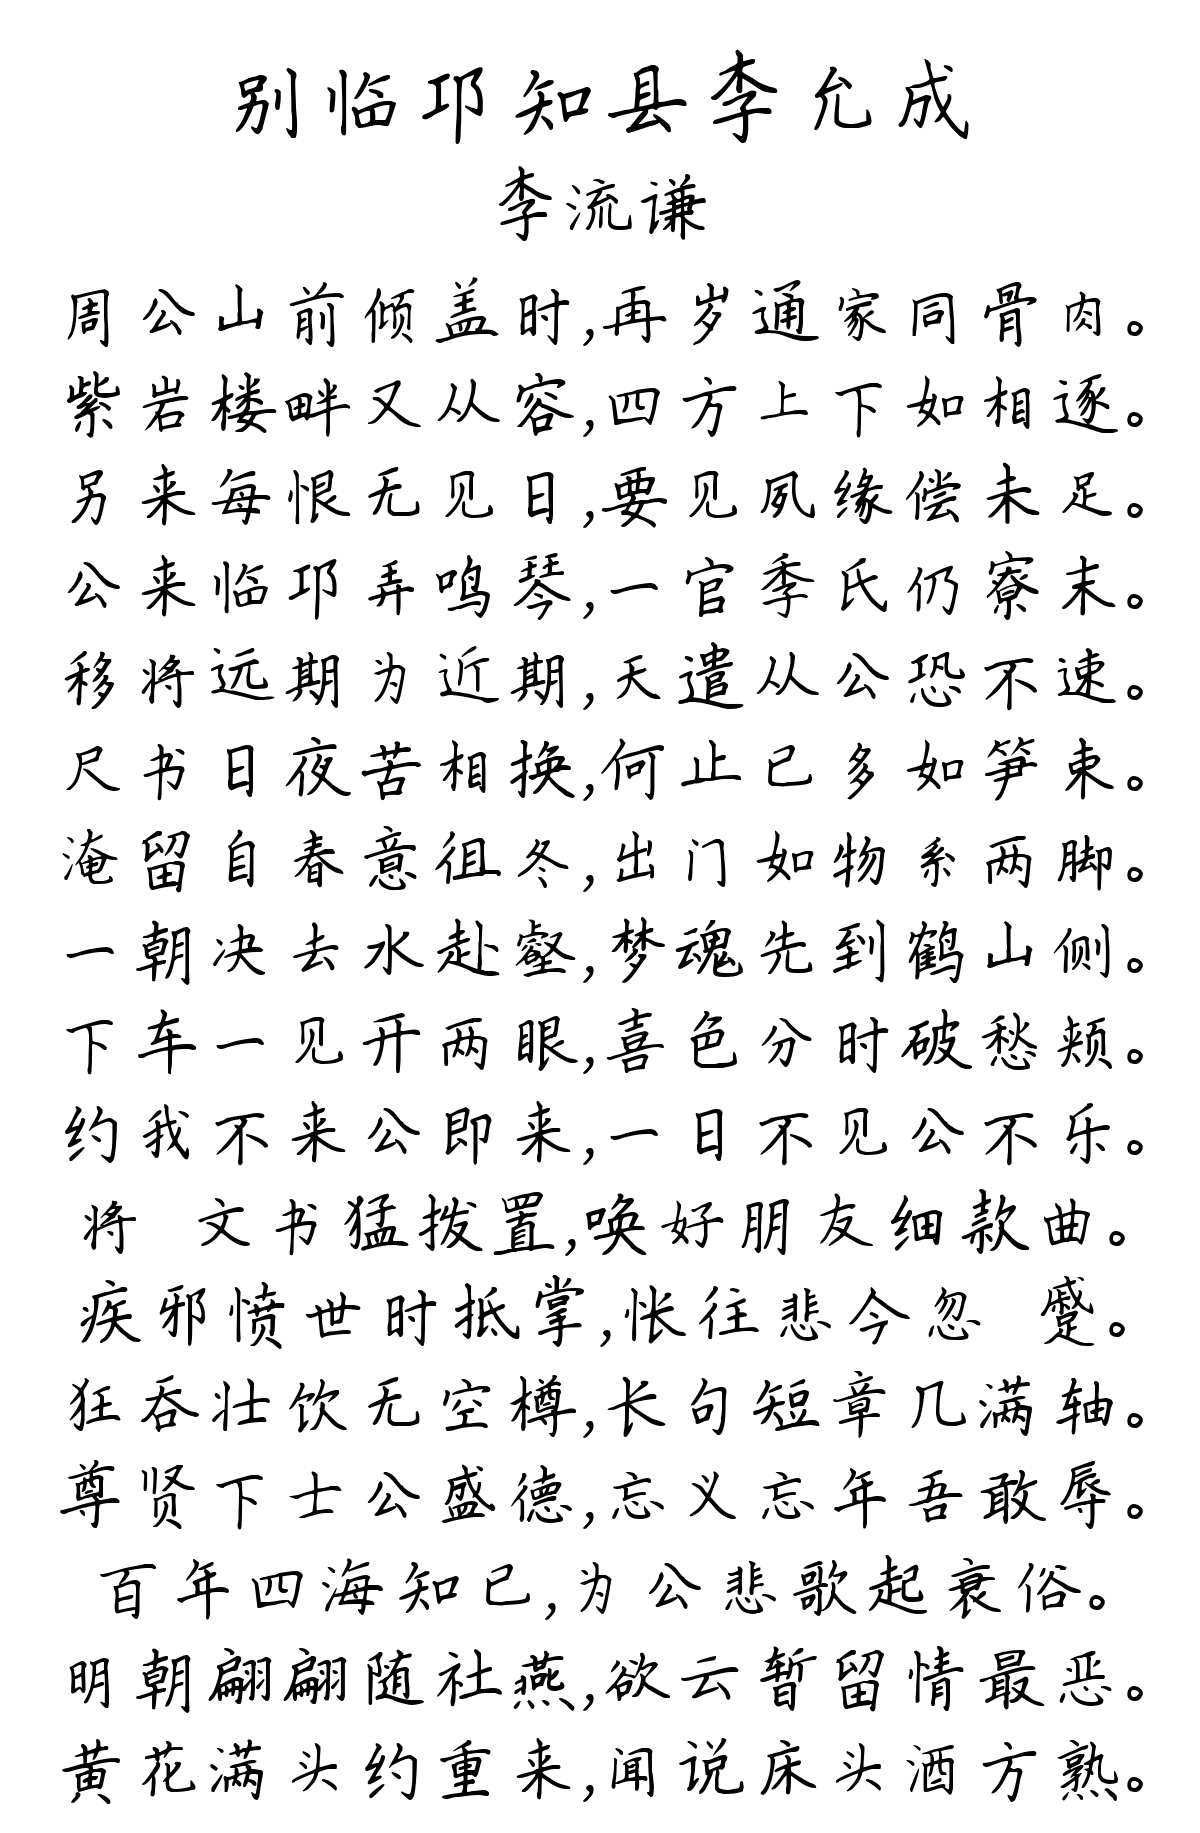 别临邛知县李允成
李流谦
周公山前倾盖时,再岁通家同骨肉。
紫岩楼畔又从容,四方上下如相逐。
另来每恨无见日,要见夙缘偿未足。
公来临邛弄鸣琴,一官季氏仍寮末。
移将远期为近期,天遣从公恐不速。
尺书日夜苦相换,何止已多如笋束。
淹留自春意徂冬,出门如物系两脚。
一朝决去水赴壑,梦魂先到鹤山侧。
下车一见开两眼,喜色分时破愁颊。
约我不来公即来,一日不见公不乐。
将 文书猛拨置,唤好朋友细款曲。
疾邪愤世时抵掌,怅往悲今忽 蹙。
狂吞壮饮无空樽,长句短章几满轴。
尊贤下士公盛德,忘义忘年吾敢辱。
百年四海知已,为公悲歌起衰俗。
明朝翩翩随社燕,欲云暂留情最恶。
黄花满头约重来,闻说床头酒方熟。